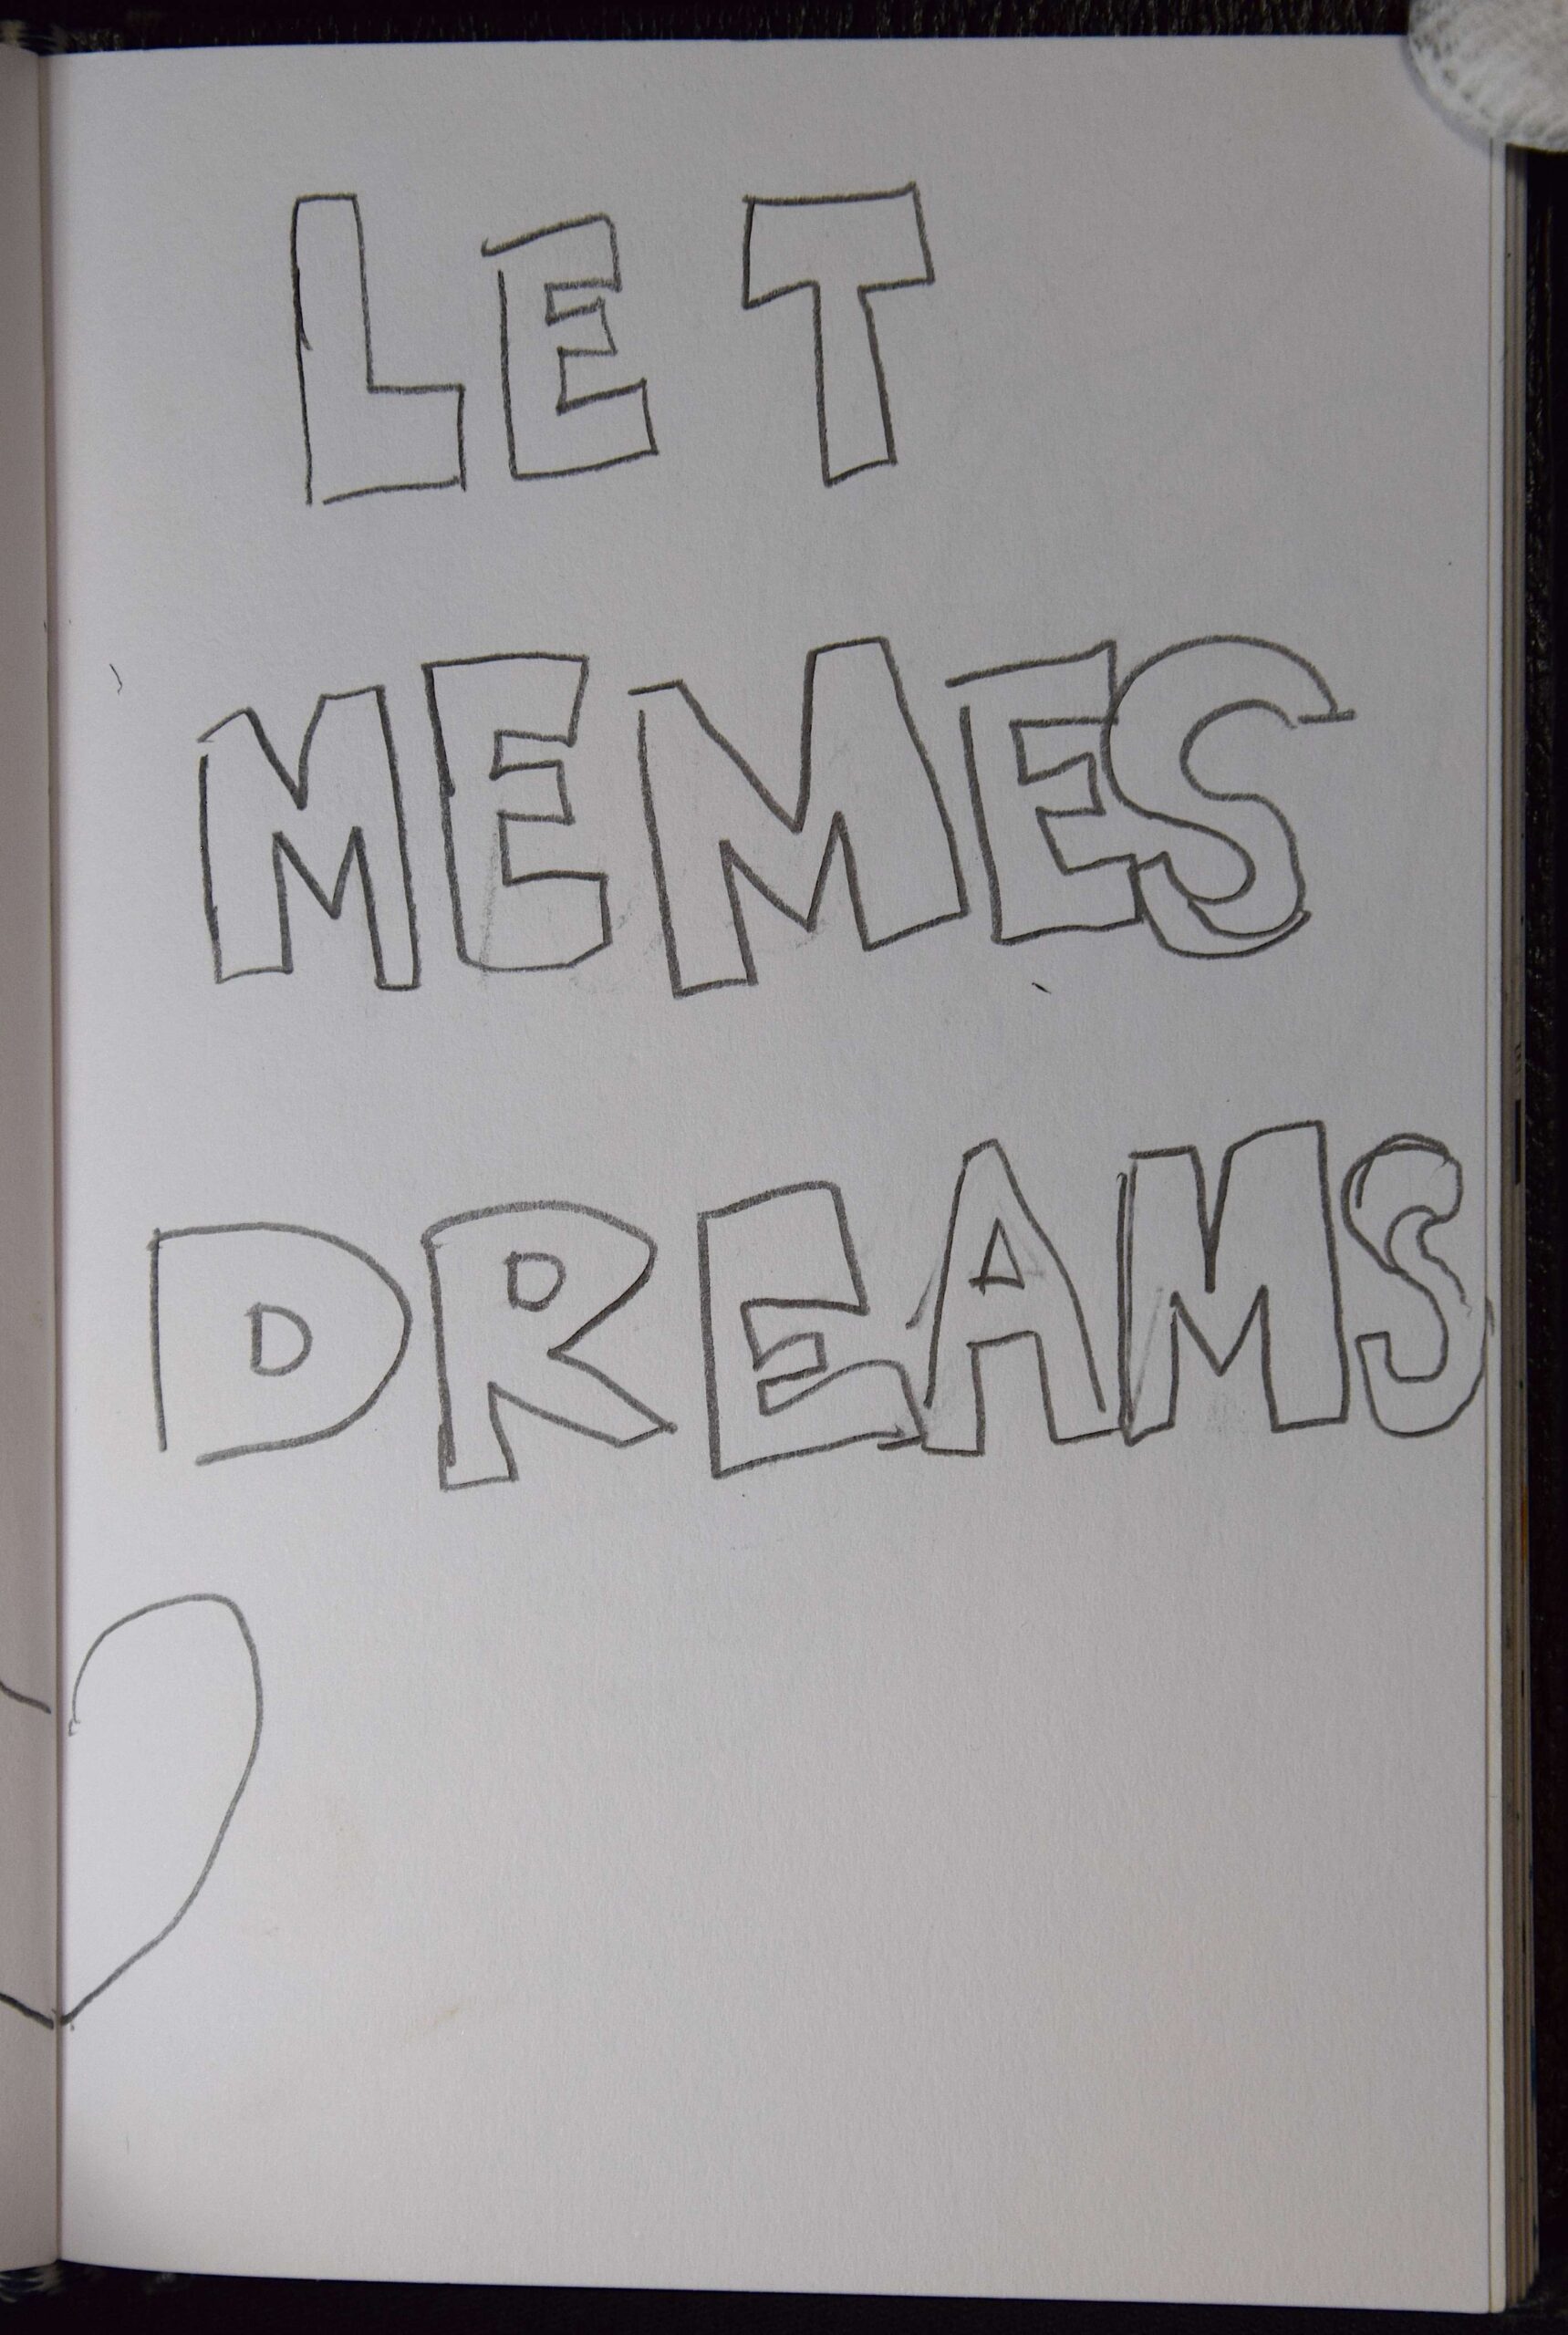 LET
MEMES
DREAMS